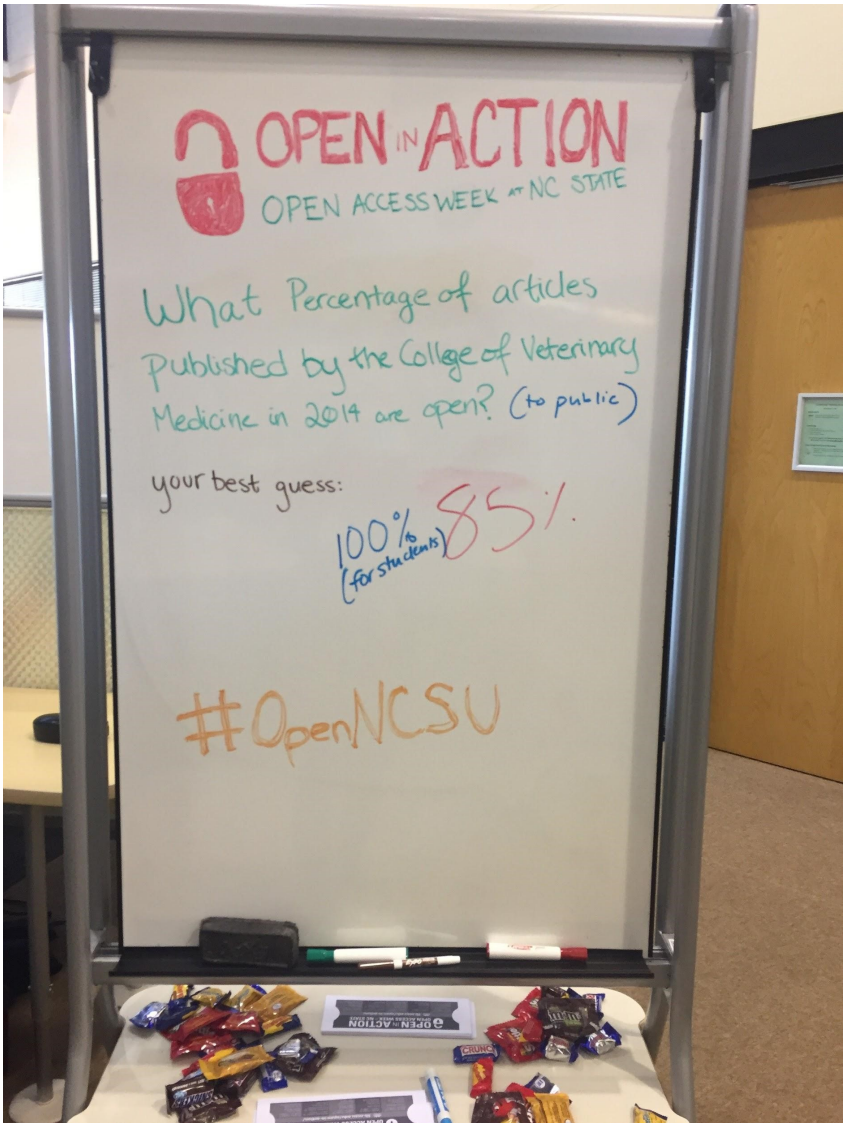 OPEN IN ACTION
OPEN ACCESS WEEK AT NC STATE
What Percentage of articles
published by the College of Veterinary
Medicine in 2014 are open? (to public)
your best guess:
100% 85%
(for students)
#OpenNCSU
OPEN IN ACTION
OPEN ACCESS WEEK NC STATE
CRUNCH
m&m's